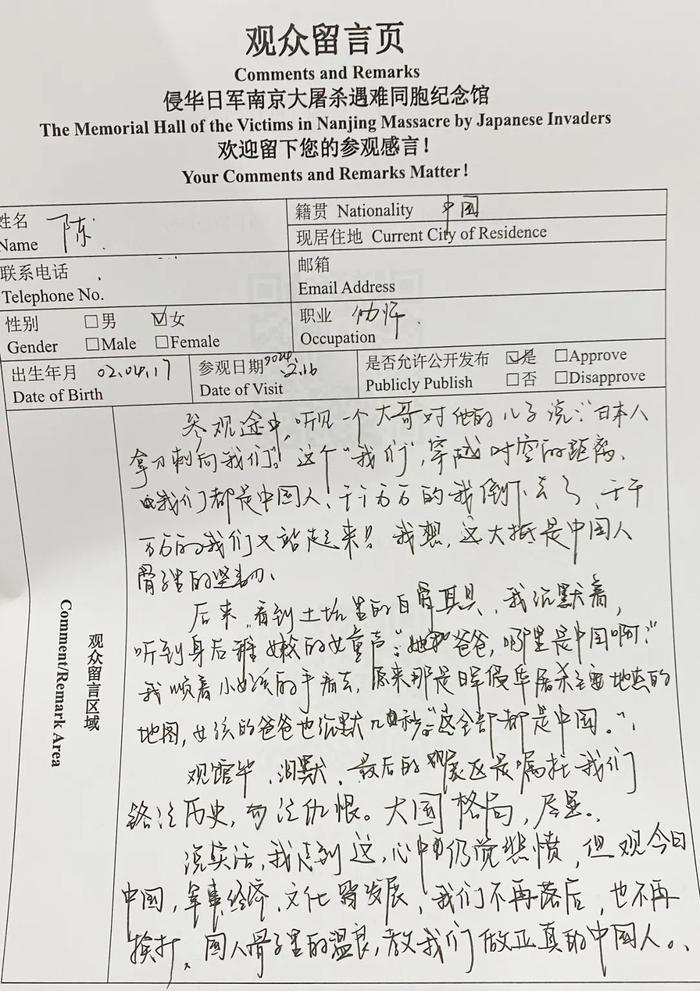 观众留言页
Comments and Remarks
侵华日军南京大屠杀遇难同胞纪念馆
The Memorial Hall of the Victims in Nanjing Massacre by Japanese Invaders
欢迎留下您的参观感言！
Your Comments and Remarks Matter！
姓名 Name 陈 籍贯 Nationality 中国
现居住地 Current City of Residence
联系电话 Telephone No. 邮箱 Email Address
性别 Gender □男 Male ☑女 Female 职业 Occupation 幼师
出生年月 Date of Birth 02.04.17 参观日期 Date of Visit 2024.2.16 是否允许公开发布 Publicly Publish ☑是 □Approve □否 □Disapprove
观众留言区域 Comment/Remark Area
参观途中，听见一个大哥对他的儿子说：“日本人
拿刀刺向我们。”这个“我们”，穿越时空的距离、
我们都是中国人、千千万万的我倒下去了、千千
万万的我们又站起来！我想，这大抵是中国人
骨子里的坚韧。
后来，看到土坑里的白骨具具，我沉默着，
听到身后稚嫩的女童声：“爸爸，哪里是中国啊？”
我顺着小女孩的手看去，原来那是日军侵华屠杀主要地点的
地图，女孩的爸爸也沉默几秒：“这全部都是中国。”
观馆毕，泪默，最后的展区是嘱托我们
铭记历史，勿记仇恨。大国格局，尽显。
说实话，我看到这，心中仍觉悲愤，但观今日
中国，军事、经济、文化皆发展，我们不再落后，也不再
挨打、国人骨子里的温良，教我们做正真的中国人。